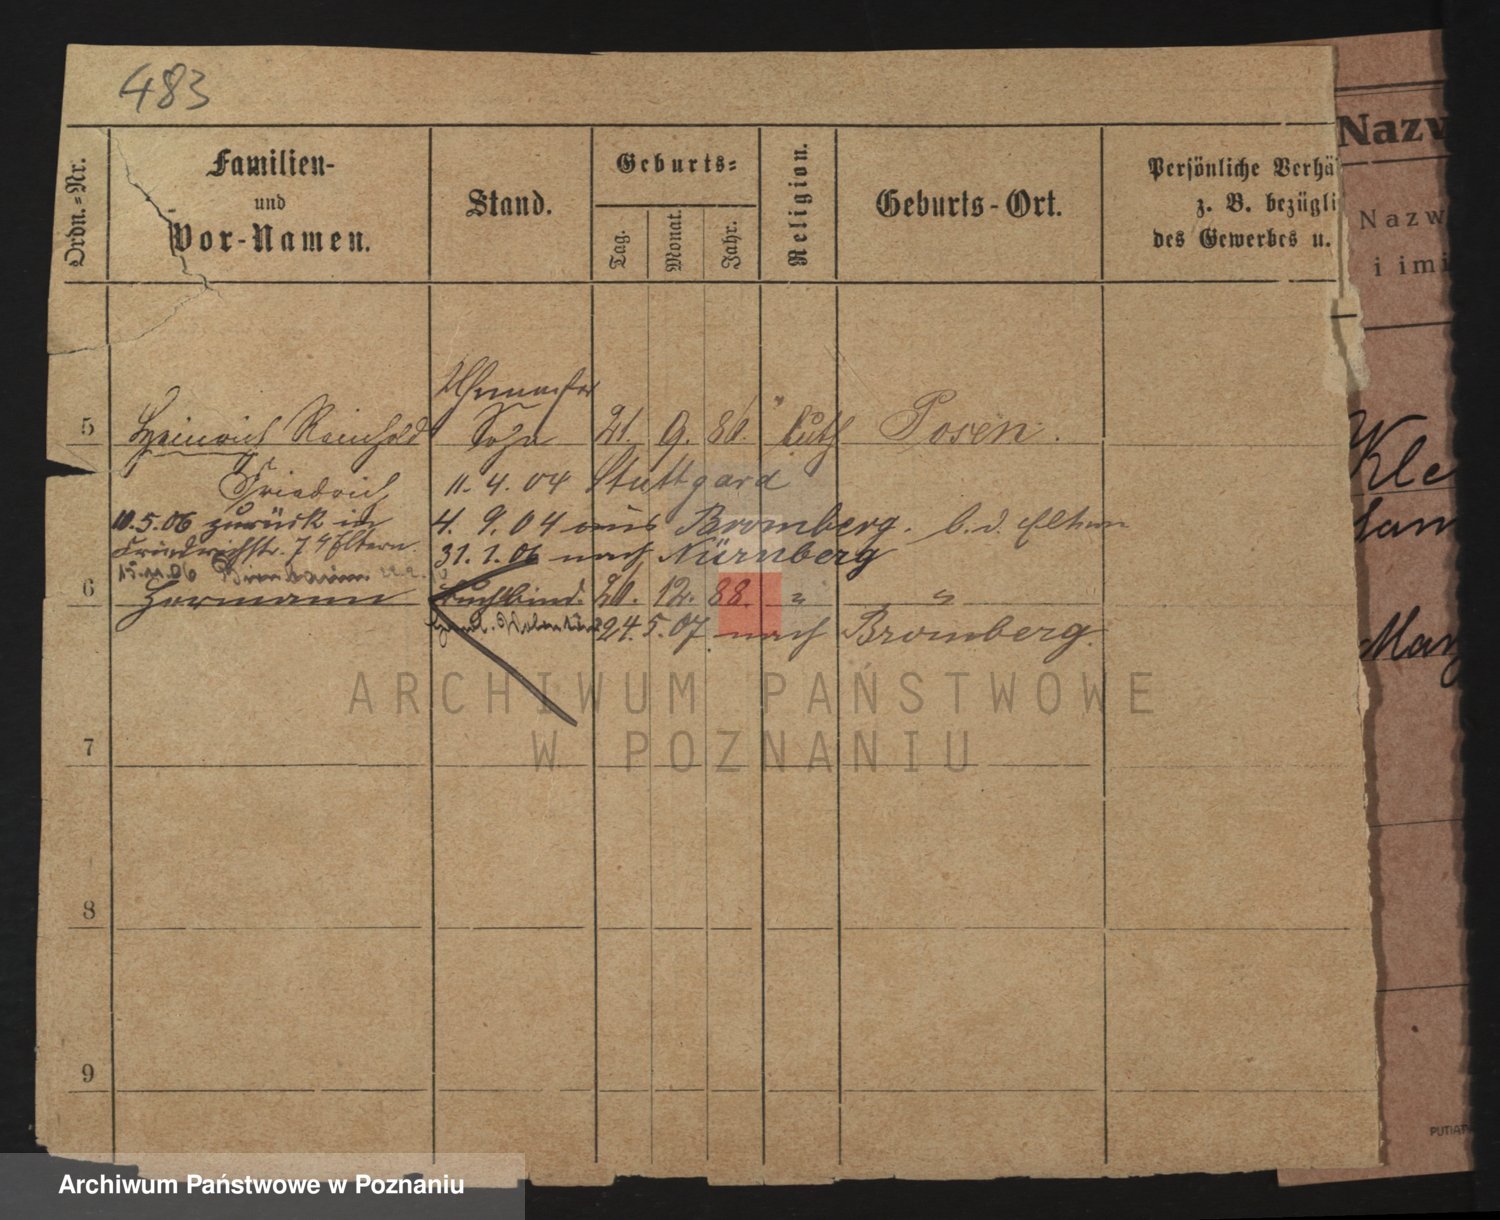 483
Ordn.-Nr.
Familien-
und
Vor-Namen.
Stand.
Geburts-
Tag.
Monat.
Jahr.
Religion.
Geburts-Ort.
Persönliche Verhä
z. B. bezügli
des Gewerbes u.
Uhrmacher
5 Heinrich Reinhold Sohn 21. 9. 80. luth Posen.
Friedrich 11. 4. 04 Stuttgard
10. 5. 06 zurück in 4. 9. 04 aus Bromberg. b. d. Eltern
Friedrichstr. 7 Eltern. 31. 1. 06 nach Nürnberg
15.11.06
6 Hermann Buchbind. 20. 12. 88. " "
24. 5. 07. nach Bromberg.
7
8
9
Nazw
Nazw
i imi
Kle
Mar
PUTIAT
ARCHIWUM PAŃSTWOWE
W POZNANIU
Archiwum Państwowe w Poznaniu